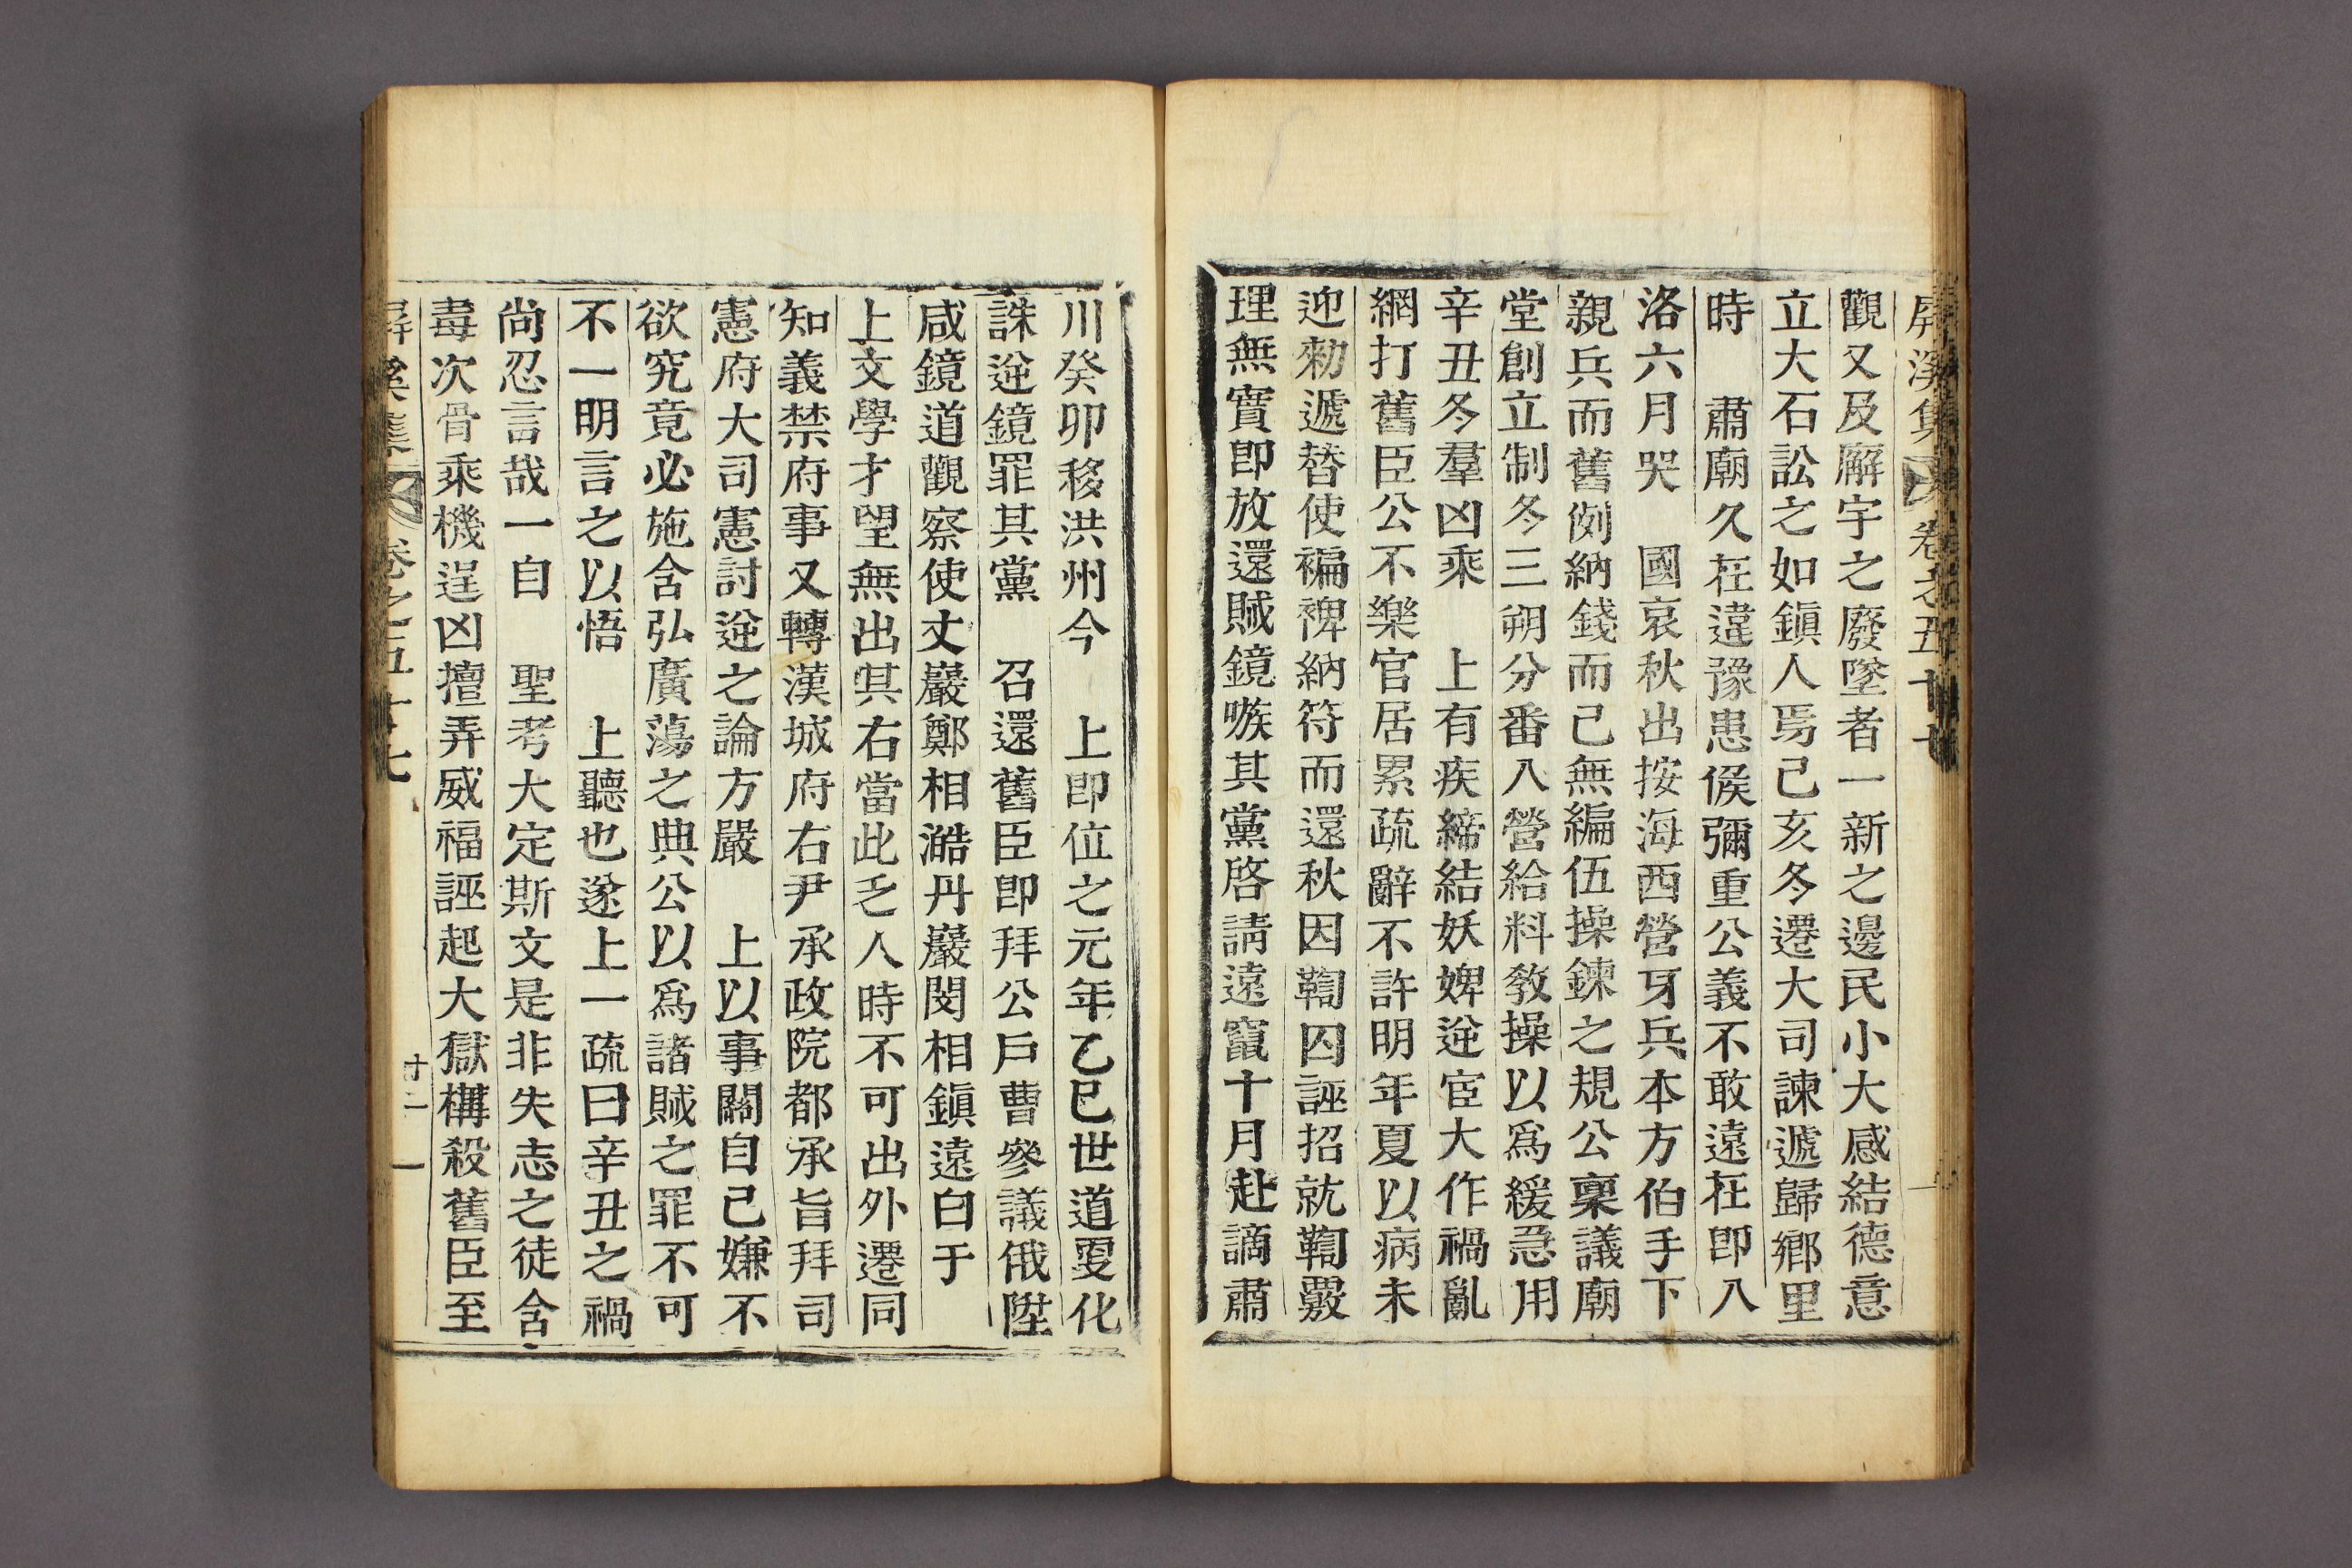 屛溪集 卷之五十七
觀又及廨宇之廢墜者一新之邊民小大感結德意
立大石訟之如鎭人焉己亥冬遷大司諫遞歸鄕里
時 肅廟久在違豫患候彌重公義不敢遠在卽入
洛六月哭 國哀秋出按海西營牙兵本方伯手下
親兵而舊例納錢而已無編伍操鍊之規公稟議廟
堂創立制冬三朔分番入營給料敎操以爲緩急用
辛丑冬羣凶乘 上有疾締結妖婢逆宦大作禍亂
網打舊臣公不樂官居累疏辭不許明年夏以病未
迎勑遞替使褊裨納符而還秋因鞫囚誣招就鞫覈
理無實卽放還賊鏡嗾其黨啓請遠竄十月赴謫肅
川癸卯移洪州今 上卽位之元年乙巳世道更化
誅逆鏡罪其黨 召還舊臣卽拜公戶曹參議俄陞
咸鏡道觀察使丈巖鄭相澔丹巖閔相鎭遠白于
上文學才望無出其右當此乏人時不可出外遷同
知義禁府事又轉漢城府右尹承政院都承旨拜司
憲府大司憲討逆之論方嚴 上以事關自己嫌不
欲究竟必施含弘廣蕩之典公以爲諸賊之罪不可
不一明言之以悟 上聽也遂上一疏曰辛丑之禍
尚忍言哉一自 聖考大定斯文是非失志之徒含
毒次骨乘機逞凶擅弄威福誣起大獄構殺舊臣至
屛溪集 卷之五十七 廿二